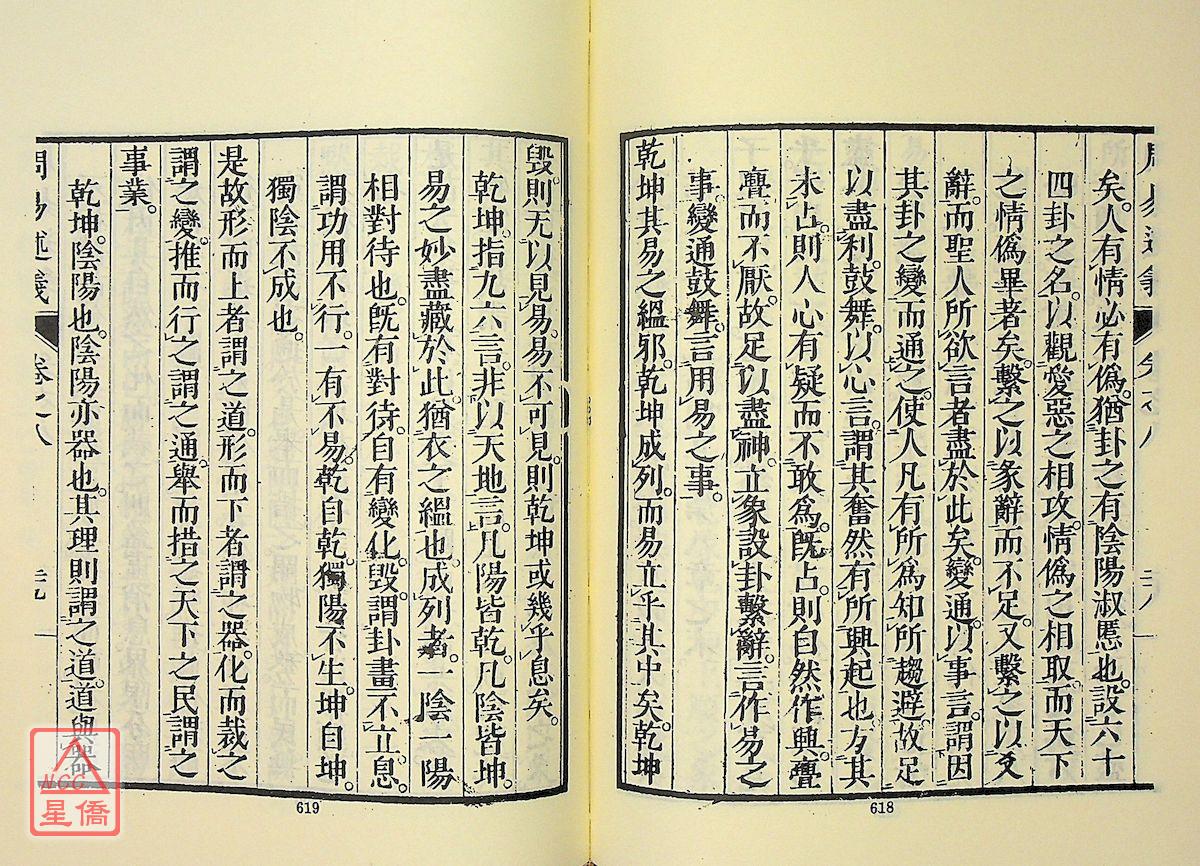 矣。人有情必有僞。猶卦之有陰陽淑慝也。設六十
四卦之名。以觀愛惡之相攻。情僞之相取。而天下
之情僞畢著矣。繫之以彖辭而不足。又繫之以爻
辭。而聖人所欲言者盡於此矣。變通。以事言。謂因
其卦之變而通之。使人凡有所爲知所趨避。故足
以盡利。鼓舞。以心言。謂其奮然有所興起也。方其
未占。則人心有疑而不敢爲。旣占。則自然作興。亹
亹而不厭。故足以盡神。立象設卦繫辭。言作易之
事。變通鼓舞。言用易之事。
乾坤其易之縕邪。乾坤成列。而易立乎其中矣。乾坤
618
毀。則无以見易。易不可見。則乾坤或幾乎息矣。
乾坤。指九六言。非以天地言。凡陽皆乾。凡陰皆坤。
易之妙盡藏於此。猶衣之縕也。成列者。一陰一陽
相對待也。旣有對待。自有變化。毀。謂卦畫不立。息。
謂功用不行。一有不易。乾自乾。獨陽不生。坤自坤。
獨陰不成也。
是故形而上者謂之道。形而下者謂之器。化而裁之
謂之變。推而行之謂之通。舉而措之天下之民謂之
事業。
乾坤。陰陽也。陰陽亦器也。其理則謂之道。道與器
周易述義
卷之八
619
NCC
星僑